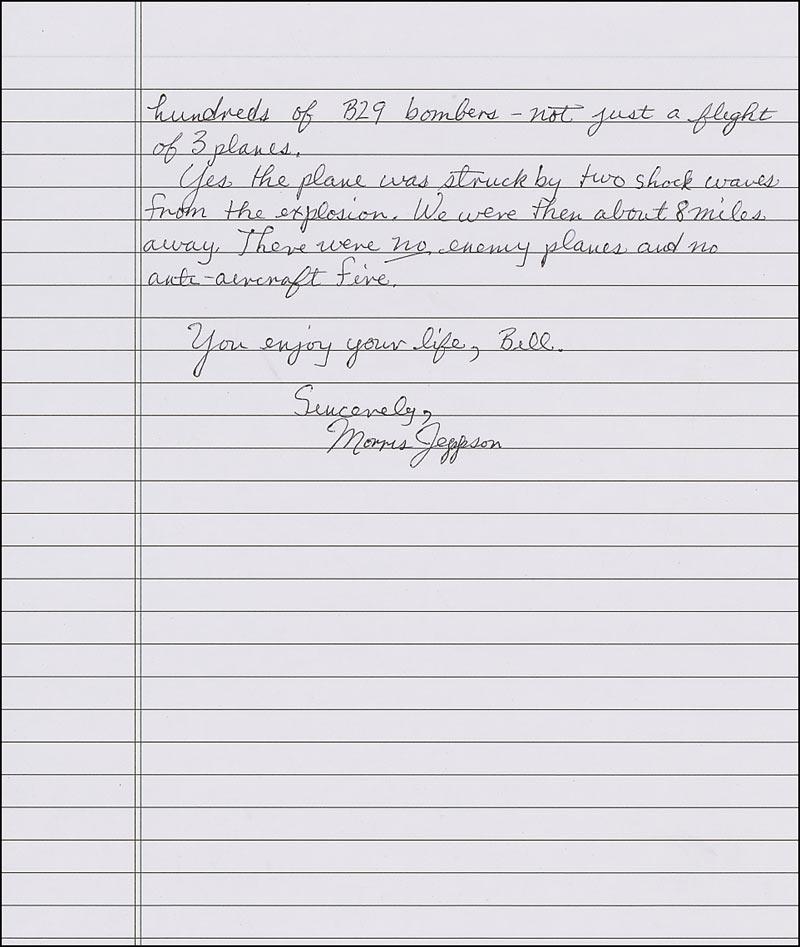 hundreds of B29 bombers - not just a flight
of 3 planes.
Yes the plane was struck by two shock waves
from the explosion. We were then about 8 miles
away. There were no enemy planes and no
anti-aircraft fire.
You enjoy your life, Bill.
Sincerely,
Morris Jeppson